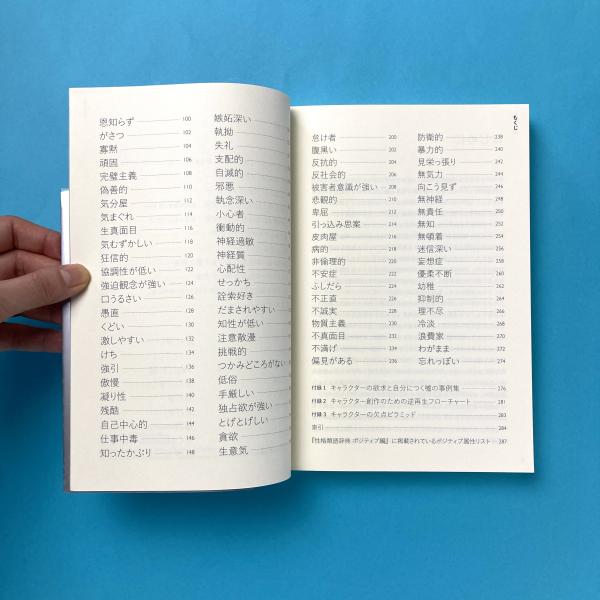 恩知らず 100
がさつ 102
寡黙 104
頑固 106
完璧主義 108
偽善的 110
気分屋 112
気まぐれ 114
生真面目 116
気むずかしい 118
狂信的 120
協調性が低い 122
強迫観念が強い 124
口うるさい 126
愚直 128
くどい 130
激しやすい 132
けち 134
強引 136
傲慢 138
凝り性 140
残酷 142
自己中心的 144
仕事中毒 146
知ったかぶり 148
嫉妬深い
執拗
失礼
支配的
自滅的
邪悪
執念深い
小心者
衝動的
神経過敏
神経質
心配性
せっかち
詮索好き
だまされやすい
知性が低い
注意散漫
挑戦的
つかみどころがない
低俗
手厳しい
独占欲が強い
とげとげしい
貪欲
生意気
もくじ
怠け者 200
腹黒い 202
反抗的 204
反社会的 206
被害者意識が強い 208
悲観的 210
卑屈 212
引っ込み思案 214
皮肉屋 216
病的 218
非倫理的 220
不安症 222
ふしだら 224
不正直 226
不誠実 228
物質主義 230
不真面目 232
不満げ 234
偏見がある 236
防衛的 238
暴力的 240
見栄っ張り 242
無気力 244
向こう見ず 246
無神経 248
無責任 250
無知 252
無頓着 254
迷信深い 256
妄想症 258
優柔不断 260
幼稚 262
抑制的 264
理不尽 266
冷淡 268
浪費家 270
わがまま 272
忘れっぽい 274
付録1 キャラクターの欲求と自分につく嘘の事例集 276
付録2 キャラクター創作のための逆再生フローチャート 281
付録3 キャラクターの欠点ピラミッド 283
索引 284
『性格類語辞典 ポジティブ編』に掲載されているポジティブ属性リスト 287